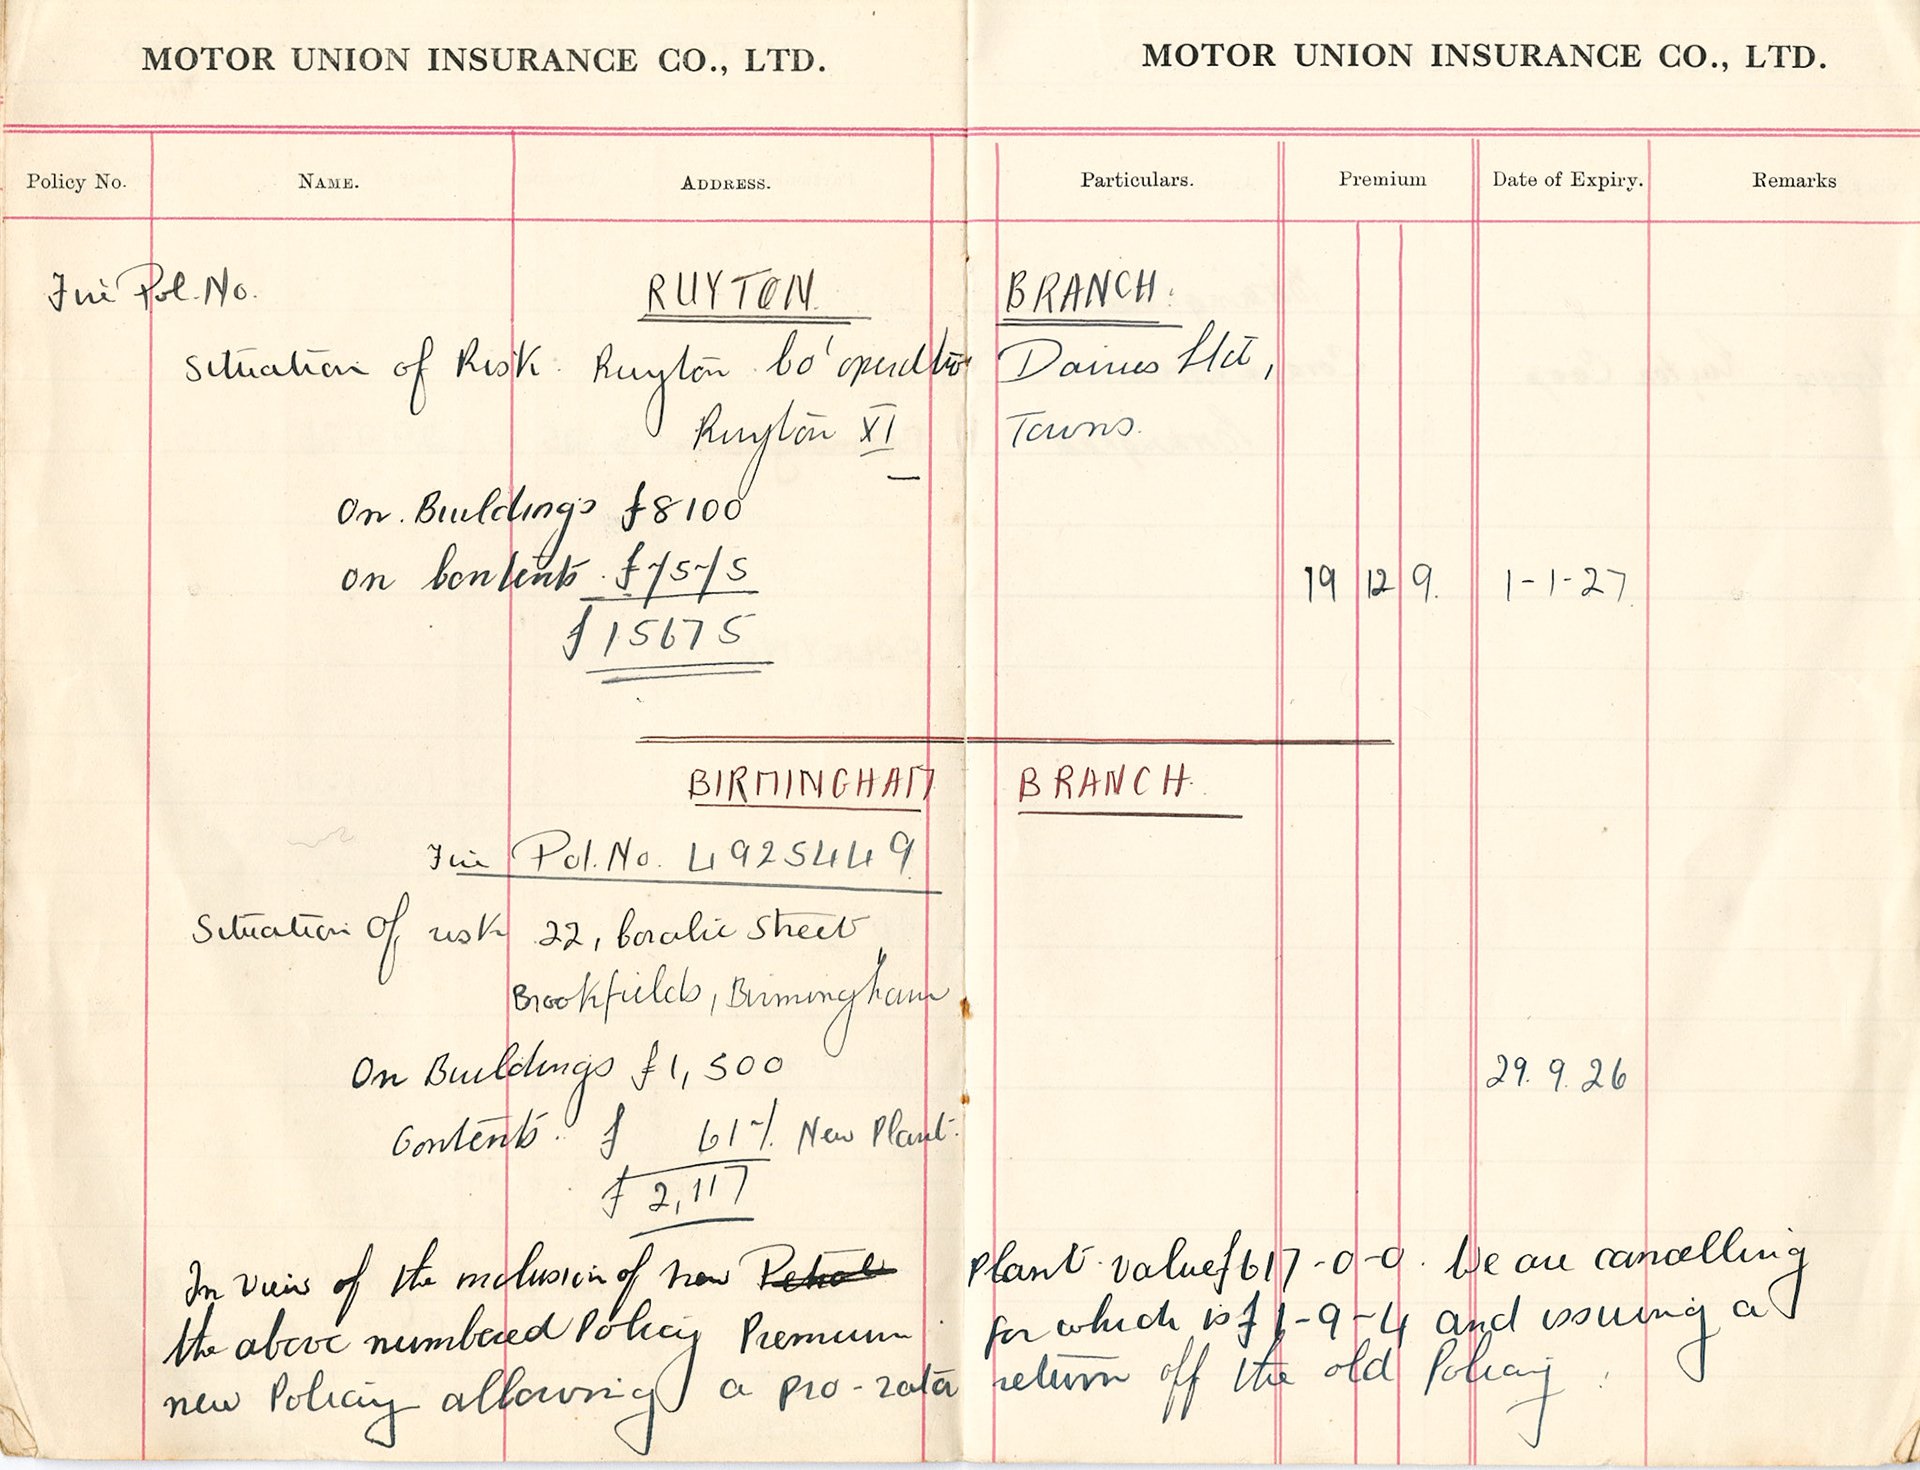 MOTOR UNION INSURANCE CO., LTD. MOTOR UNION INSURANCE CO., LTD.
Policy No. NAME. ADDRESS. Particulars. Premium Date of Expiry. Remarks
Fire Pol. No. RUYTON BRANCH.
Situation of Risk. Ruyton Co'operative Dairies Ltd,
Ruyton XI Towns.
On Buildings £8100
on Contents £7575 19 12 9. 1-1-27.
£15675
BIRMINGHAM BRANCH.
Fire Pol. No. 4925449.
Situation of risk 22, Coralie Street
Brookfields, Birmingham
On Buildings £1,500 29.9.26
Contents £ 617. New Plant.
£2,117
In view of the inclusion of new Petrol Plant value £617-0-0. We are cancelling
the above numbered Policy Premium for which is £1-9-4 and issuing a
new Policy allowing a pro-rata return off the old Policy.